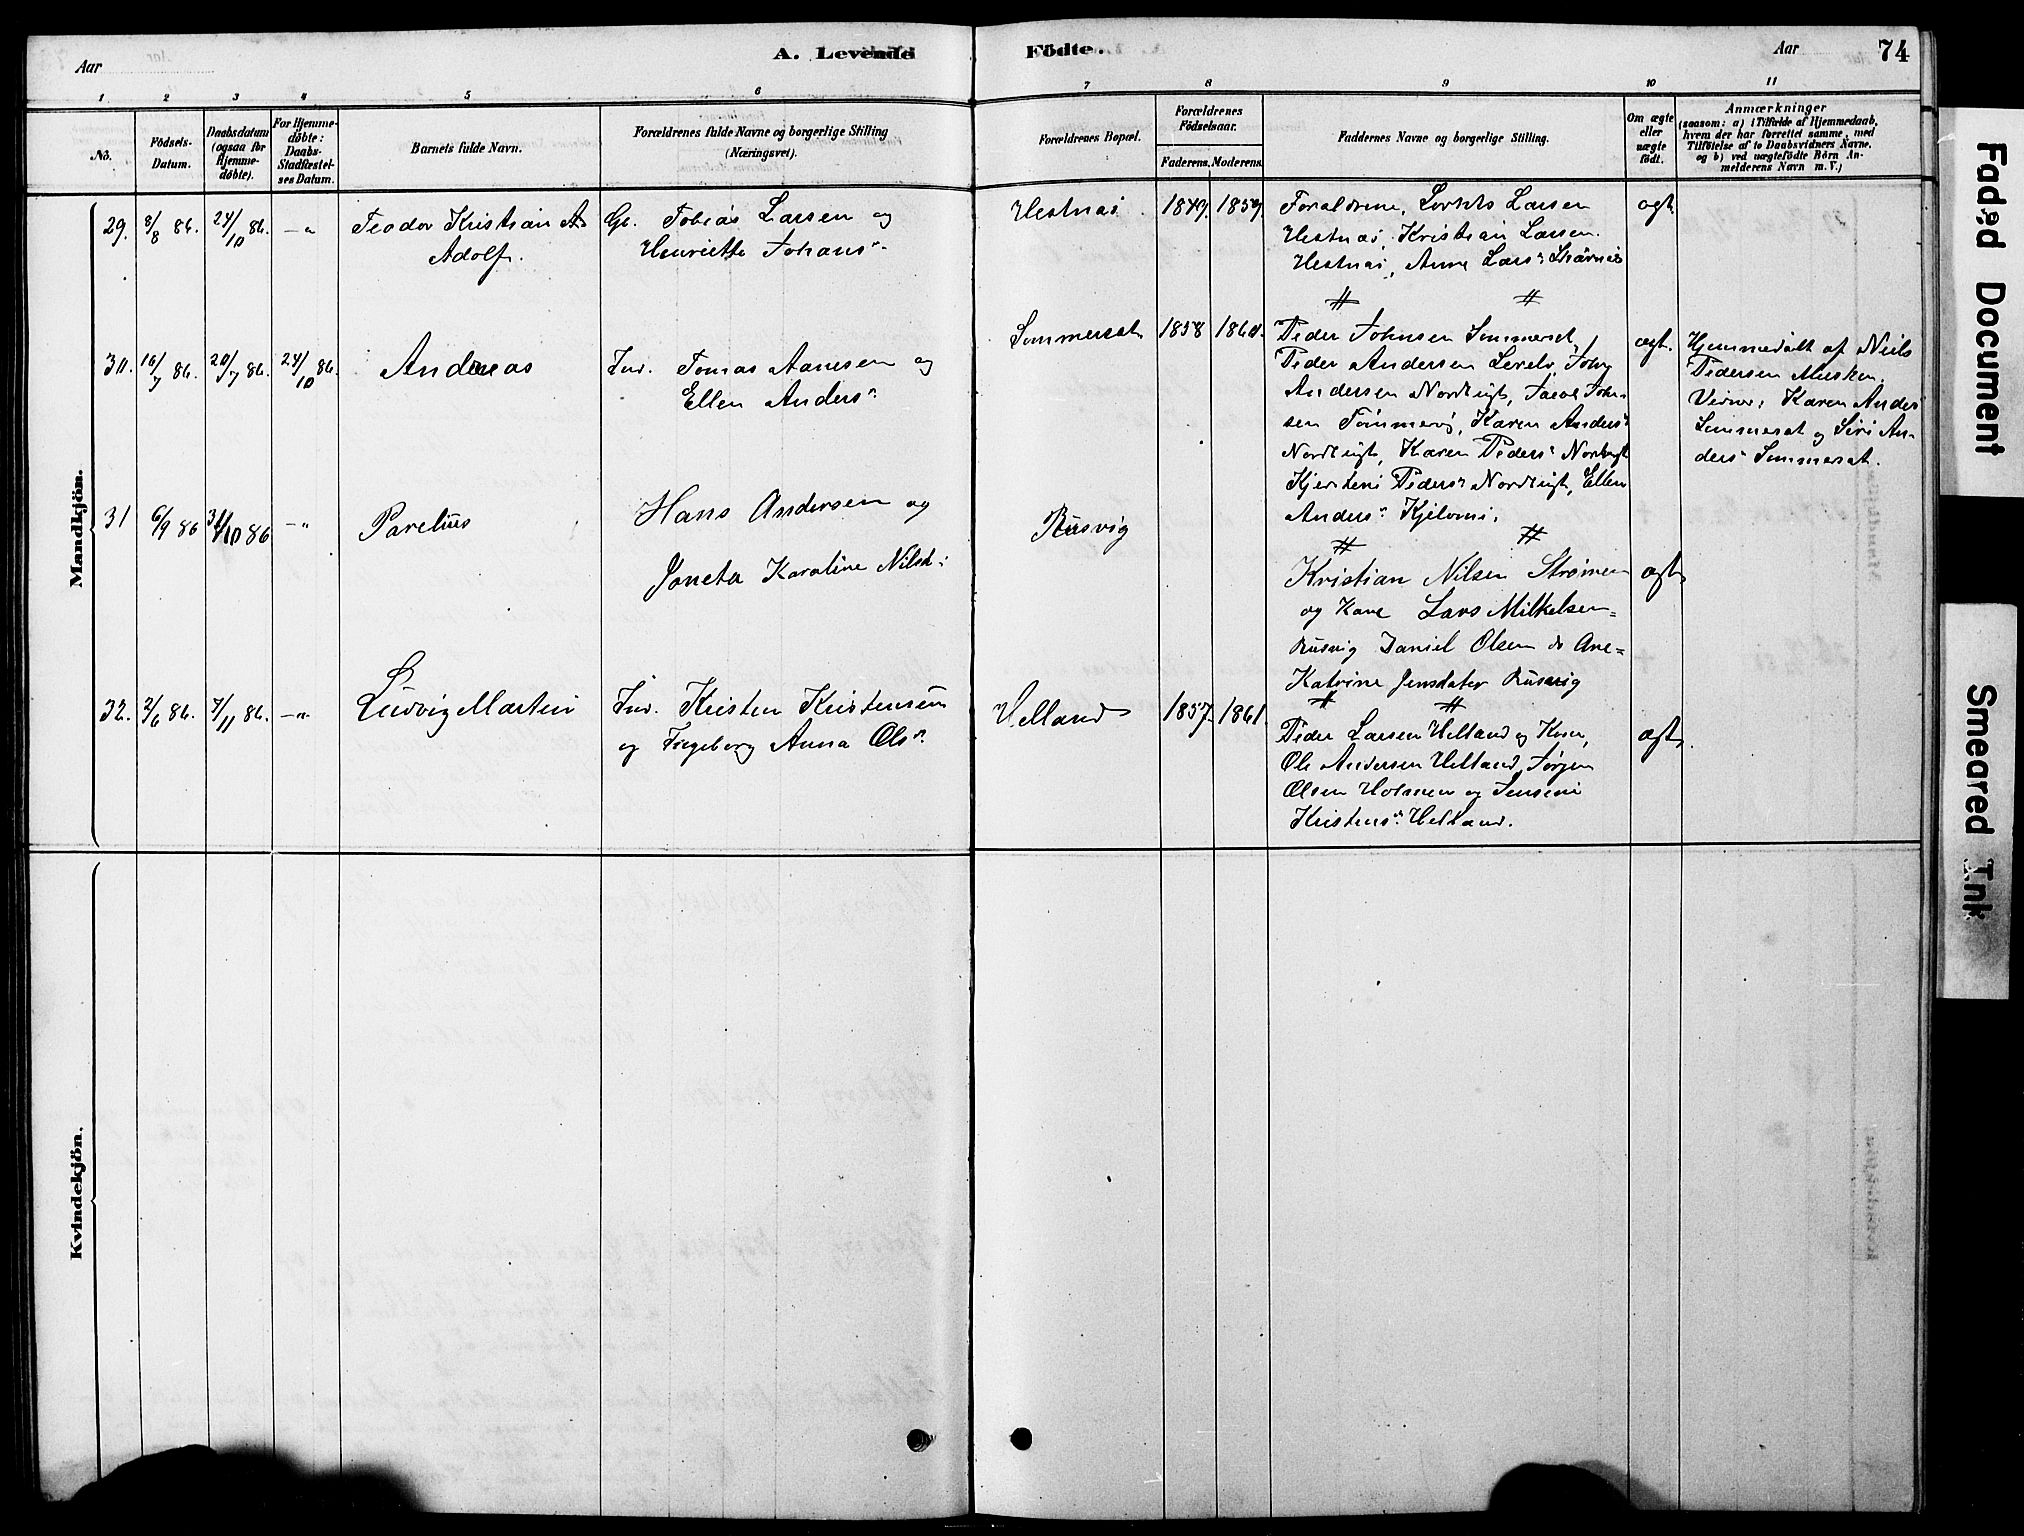 Aar
A. Levende
Födte.
Aar
74
1 2 3 4 5 6 7 8 9 10 11
No.
Födsels-
Datum.
Daabsdatum
(ogsaa för
Hjemme-
döbte).
For Hjemme-
döbte:
Daabs-
Stadfæstel-
ses Datum.
Barnets fulde Navn.
Forældrenes fulde Navne og borgerlige Stilling
(Næringsvei).
Forældrenes Bopæl.
Forældrenes
Födselsaar.
Faderens. Moderens.
Faddernes Navne og borgerlige Stilling.
Om ægte
eller
uægte
födt.
Anmærkninger
(saasom: a) i Tilfælde af Hjemmedaab,
hvem der har forrettet samme, med
Tilföielse af to Daabsvidners Navne,
og b) ved uægtefödte Börn An-
melderens Navn m. V.)
Mandkjön.
29. 8/8 86. 24/10 86. -"-
Teodor Kristian
Adolf.
Tobias Larsen og
Henriette Johansn
Hestnæs 1849. 1859.
Forældrene, Larsen
Hestnæs, Kristian Larsen
Hestnæs, Anne Larsn
ægt.
30. 16/7 86. 20/7 86. 24/10 86.
Andreas
Ind. Tomas Aanesen og
Ellen Andersn
Sommersæt 1858 1860.
Peder Johnsen Sommerset,
Peder Andersen John
Andersen Nordbugt, Jacob John-
sen Tømmerø, Karen Andersn
Nordbugt, Karen Pedersn Nordbugt
Pedersn Nordbugt, Ellen
Andersn
ægt.
Hjemmedøbt af Niels
Pedersen Musken.
Karen Anders
Sommersæt og Siri An-
dersn Sommersæt.
31 6/9 86 31/10 86 -"-
Parelius
Hans Andersen og
Karoline Nilsd:
Rusvig
Kristian Nilsen Strømen
og Kone Lars Mikkelsen
Rusvig Daniel Olsen do Ane
Katrine Jensdater Rusvig
ægt
32. 2/6 86. 7/11 86. -"-
Ludvig Martin
Ind. Kristen Kristensen
og Ingeborg Anna Olsn
Helland 1857. 1861.
Peder Larsen Helland og Kone,
Ole Andersen Helland, Jørgen
Olsen Holmen og Jensine
Kristensn Helland.
ægt
Kvindekjön.
Faded Document
Smeared Ink